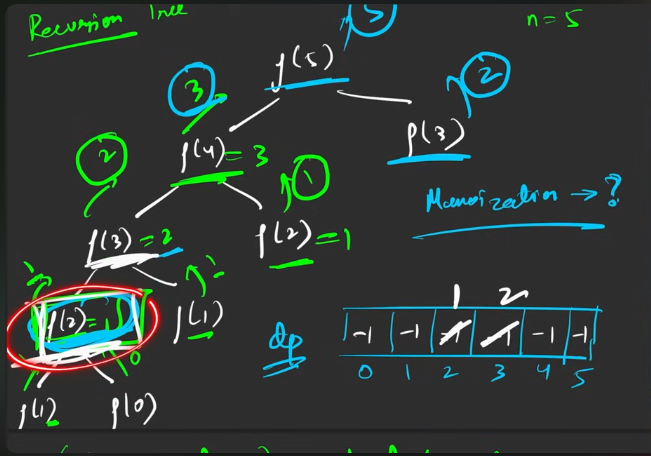 Recursion Tree
n = 5
5
f(5)
3
2
f(4) = 3
f(3)
2
1
Memoization → ?
f(3) = 2
f(2) = 1
f(2) = 1
f(1)
1
1
0
1 2
dp
-1 -1 -1 -1 -1 -1
0 1 2 3 4 5
f(1)
f(0)